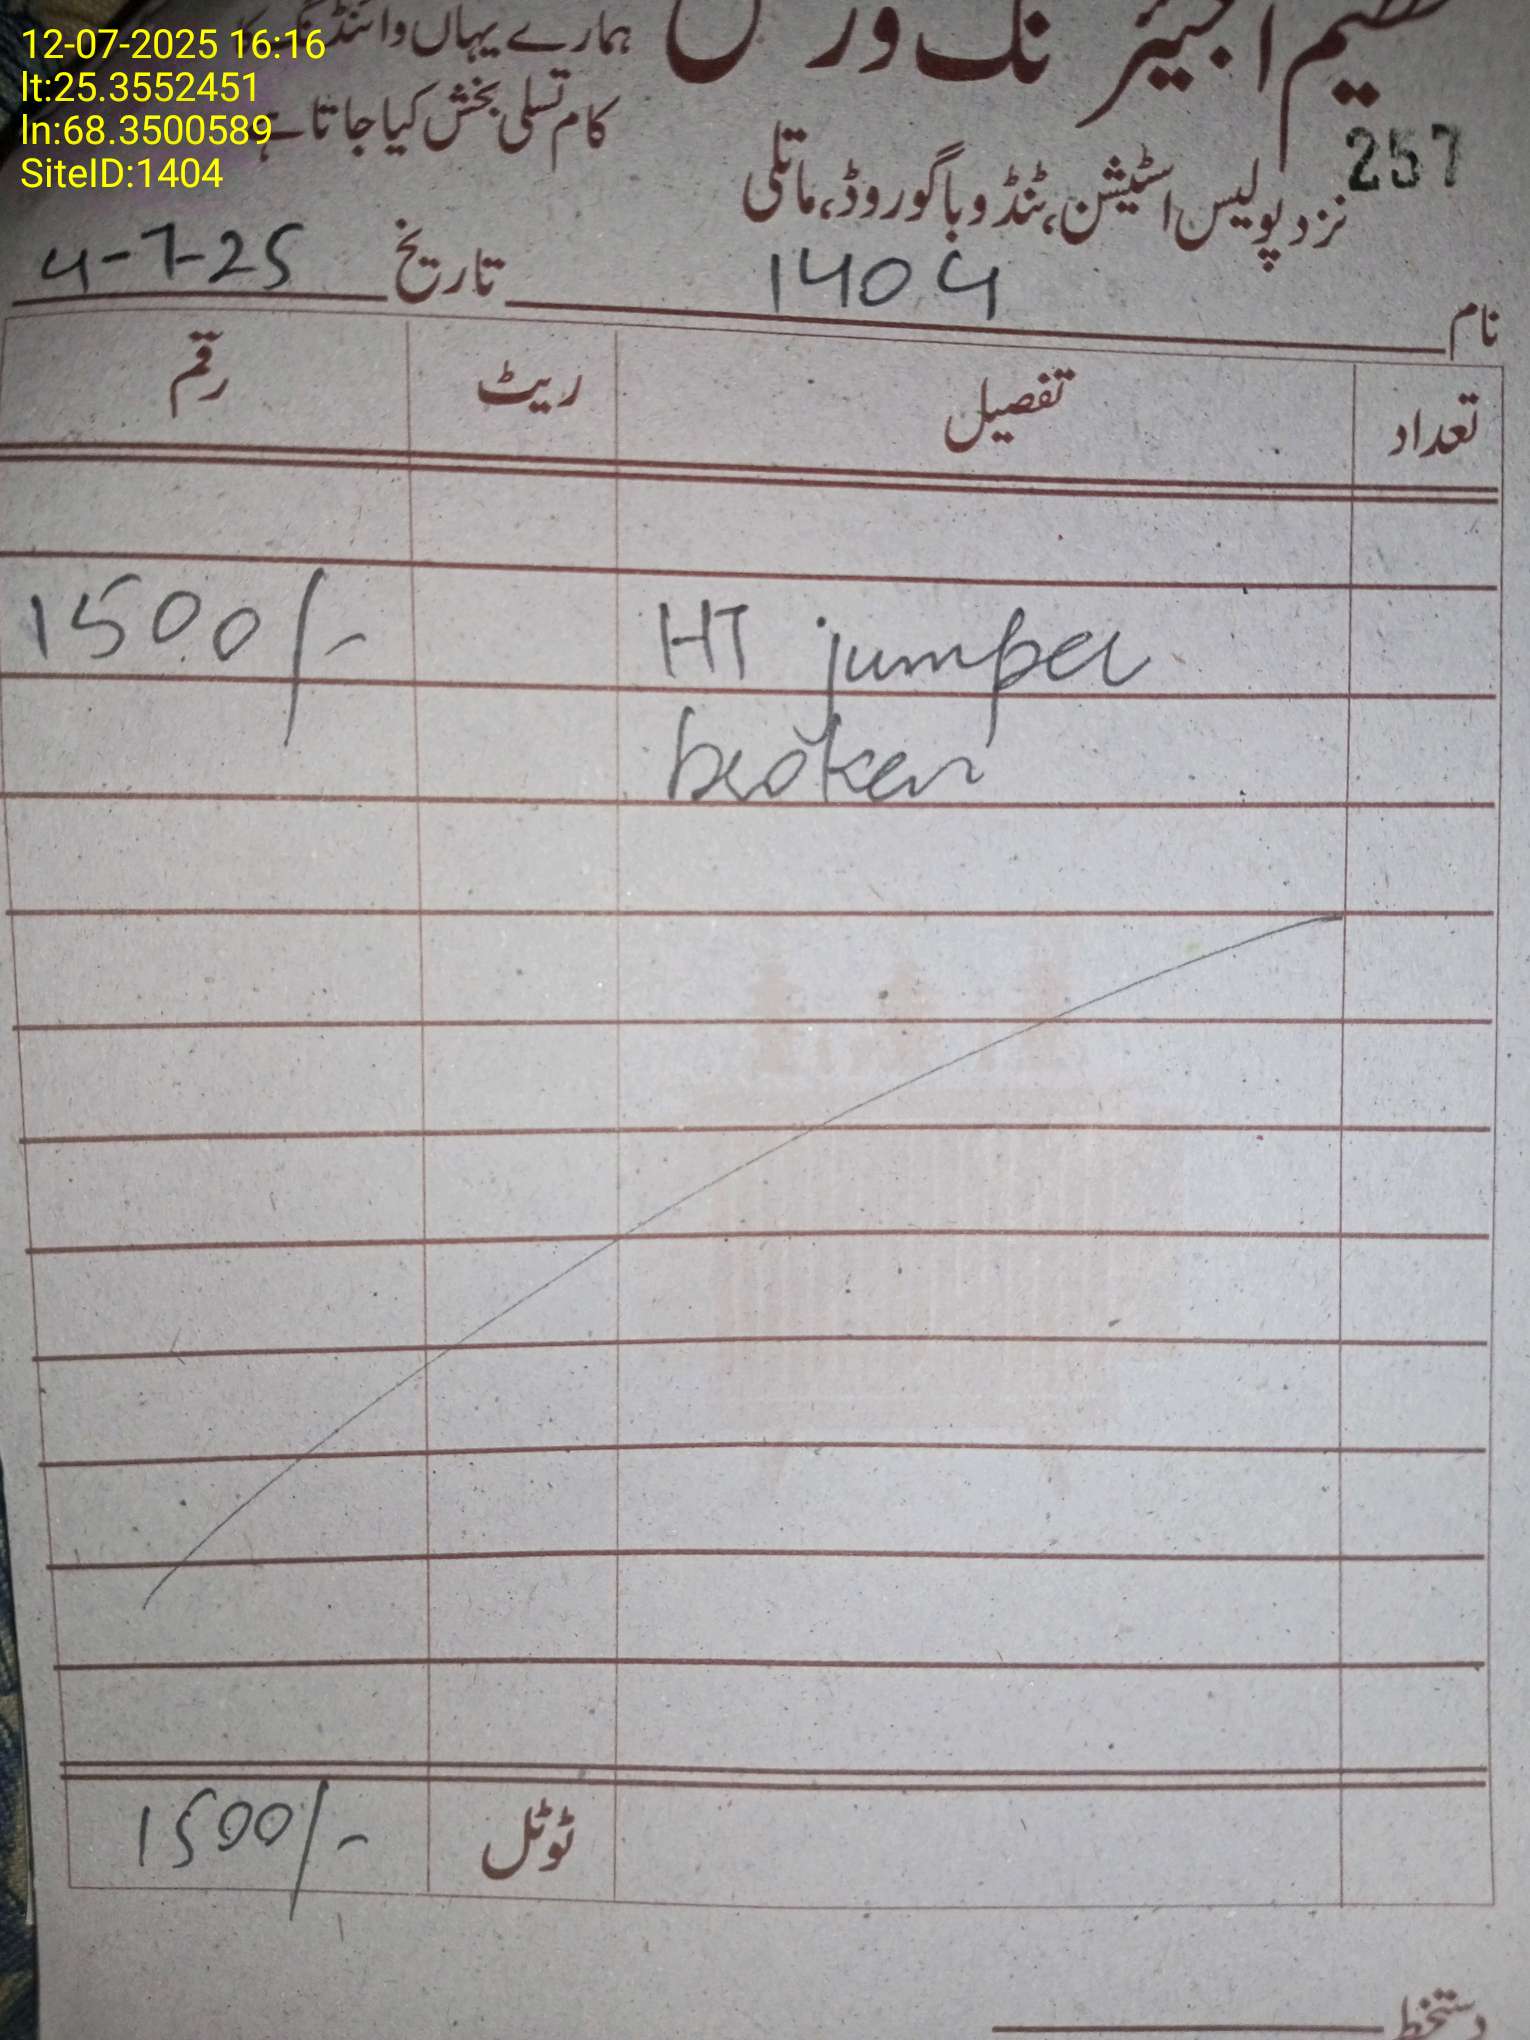 12-07-2025 16:16
lt:25.3552451
ln:68.3500589
SiteID:1404
انجینئرنگ ورکس
ہمارے یہاں وائنڈنگ کا
کام تسلی بخش کیا جاتا ہے
257
نزد پولیس اسٹیشن، ٹنڈو باگو روڈ، ماتلی
نام 1404 تاریخ 4-7-25
تعداد تفصیل ریٹ رقم
HT jumper 1500/-
broken
ٹوٹل 1500/-
دستخط